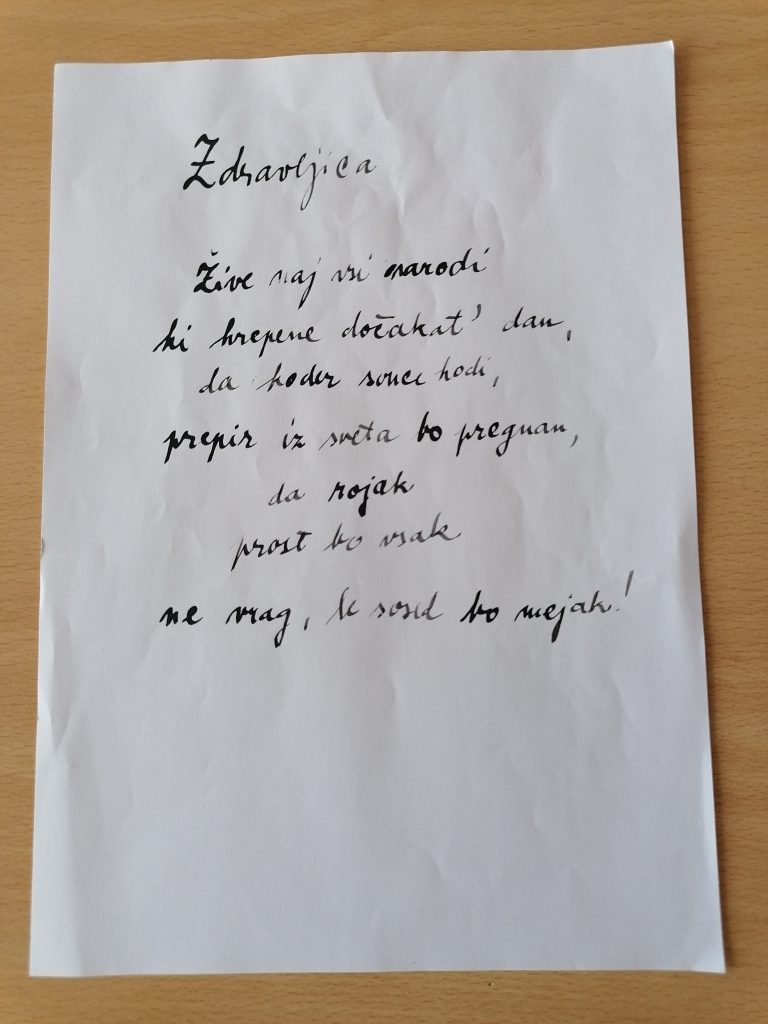 Zdravljica
Žive naj vsi narodi
ki hrepene dočakat' dan,
da koder sonce hodi,
prepir iz sveta bo pregnan,
da rojak
prost bo vsak
ne vrag, le sosed bo mejak!